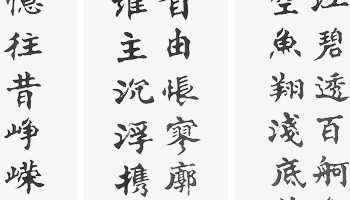 江碧透百舸
空魚翔淺底
自由悵寥廓
誰主沉浮携
憶往昔崢嶸